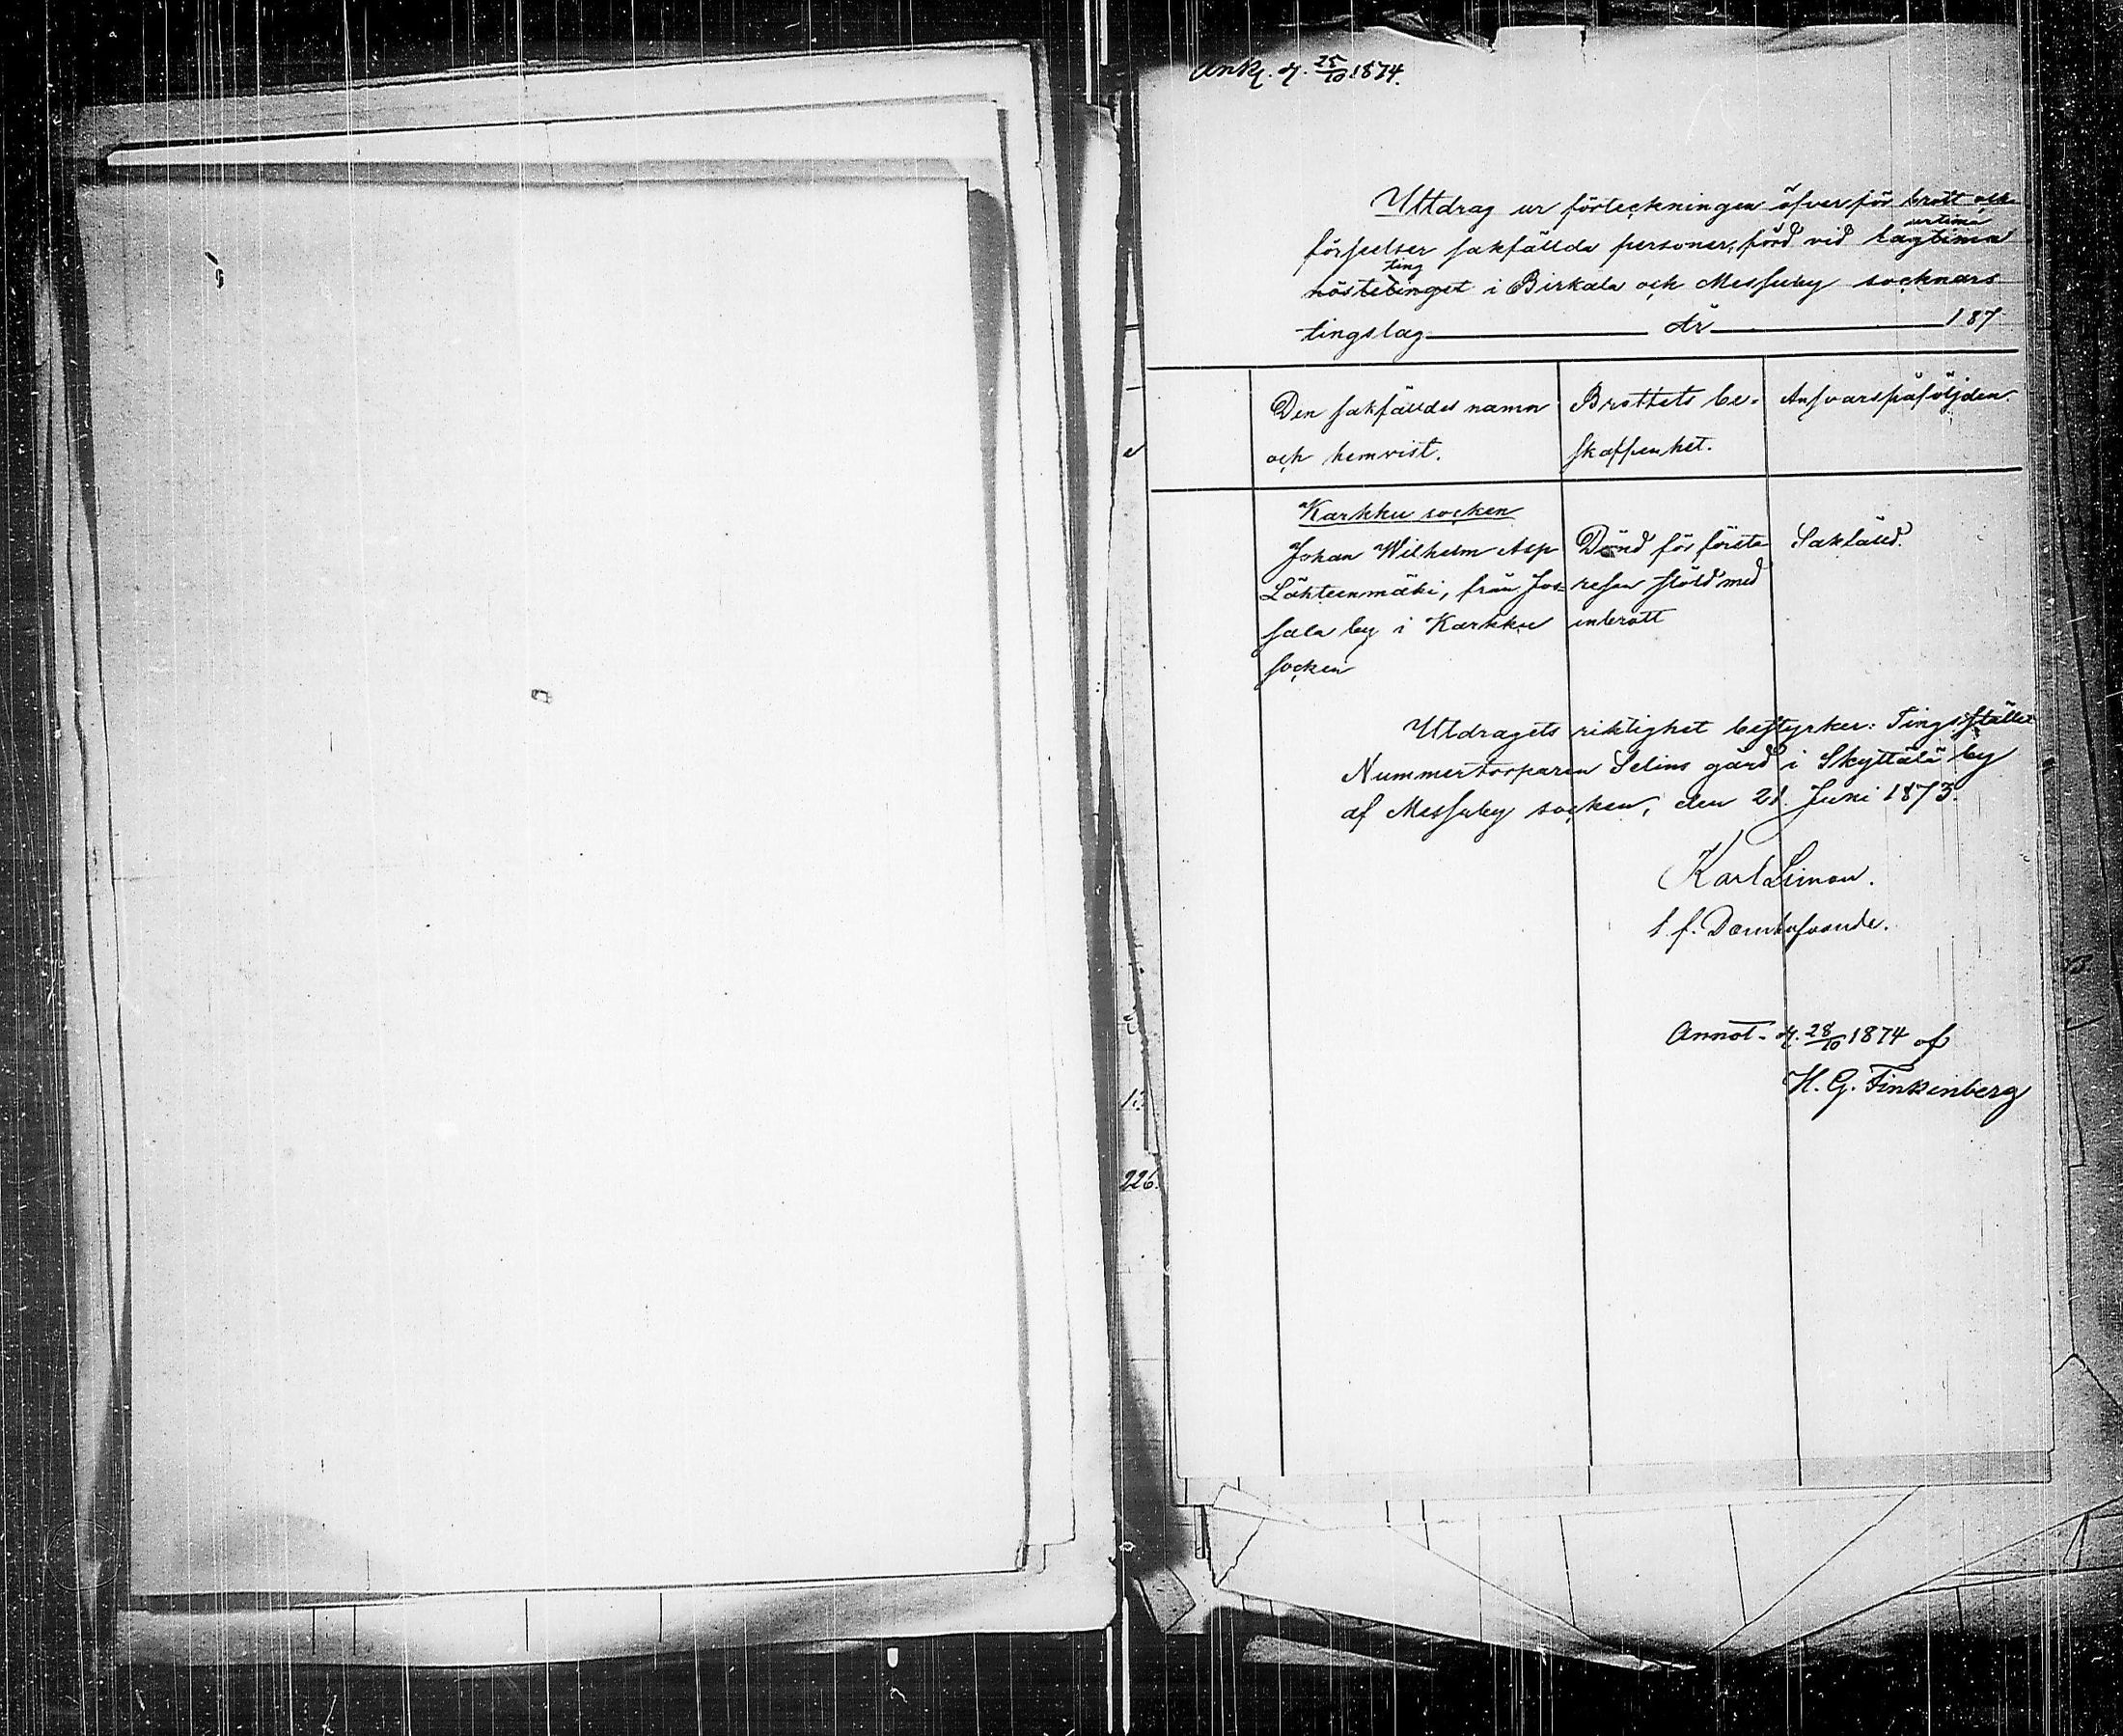 Ank. d. 25/10 1874.
Utdrag ur förteckningen öfver för brott och
förseelser sakfällde personer, förd vid lagtima urtima
höstetinget ting i Birkala och Messuby socknars
tingslag ____ År ____ 187
Den sakfälldes namn och hemvist.
Brottets beskaffenhet.
Ansvarspåföljden
Karkku socken
Johan Wilhelm Asp
Lähteenmäki, från Jos=
sala by i Karkku
socken
Dömd för första
resan stöld med
inbrott
Sakfälld.
Utdragets riktighet bestyrker: Tingsstället
Nummertorparen Selins gård i Skyttälä by
af Messuby socken, den 21. Juni 1873.
Karl Limon.
t. f. Domhafvande.
Annot. d. 28/10 1874 af
H. G. Finkenberg
226.